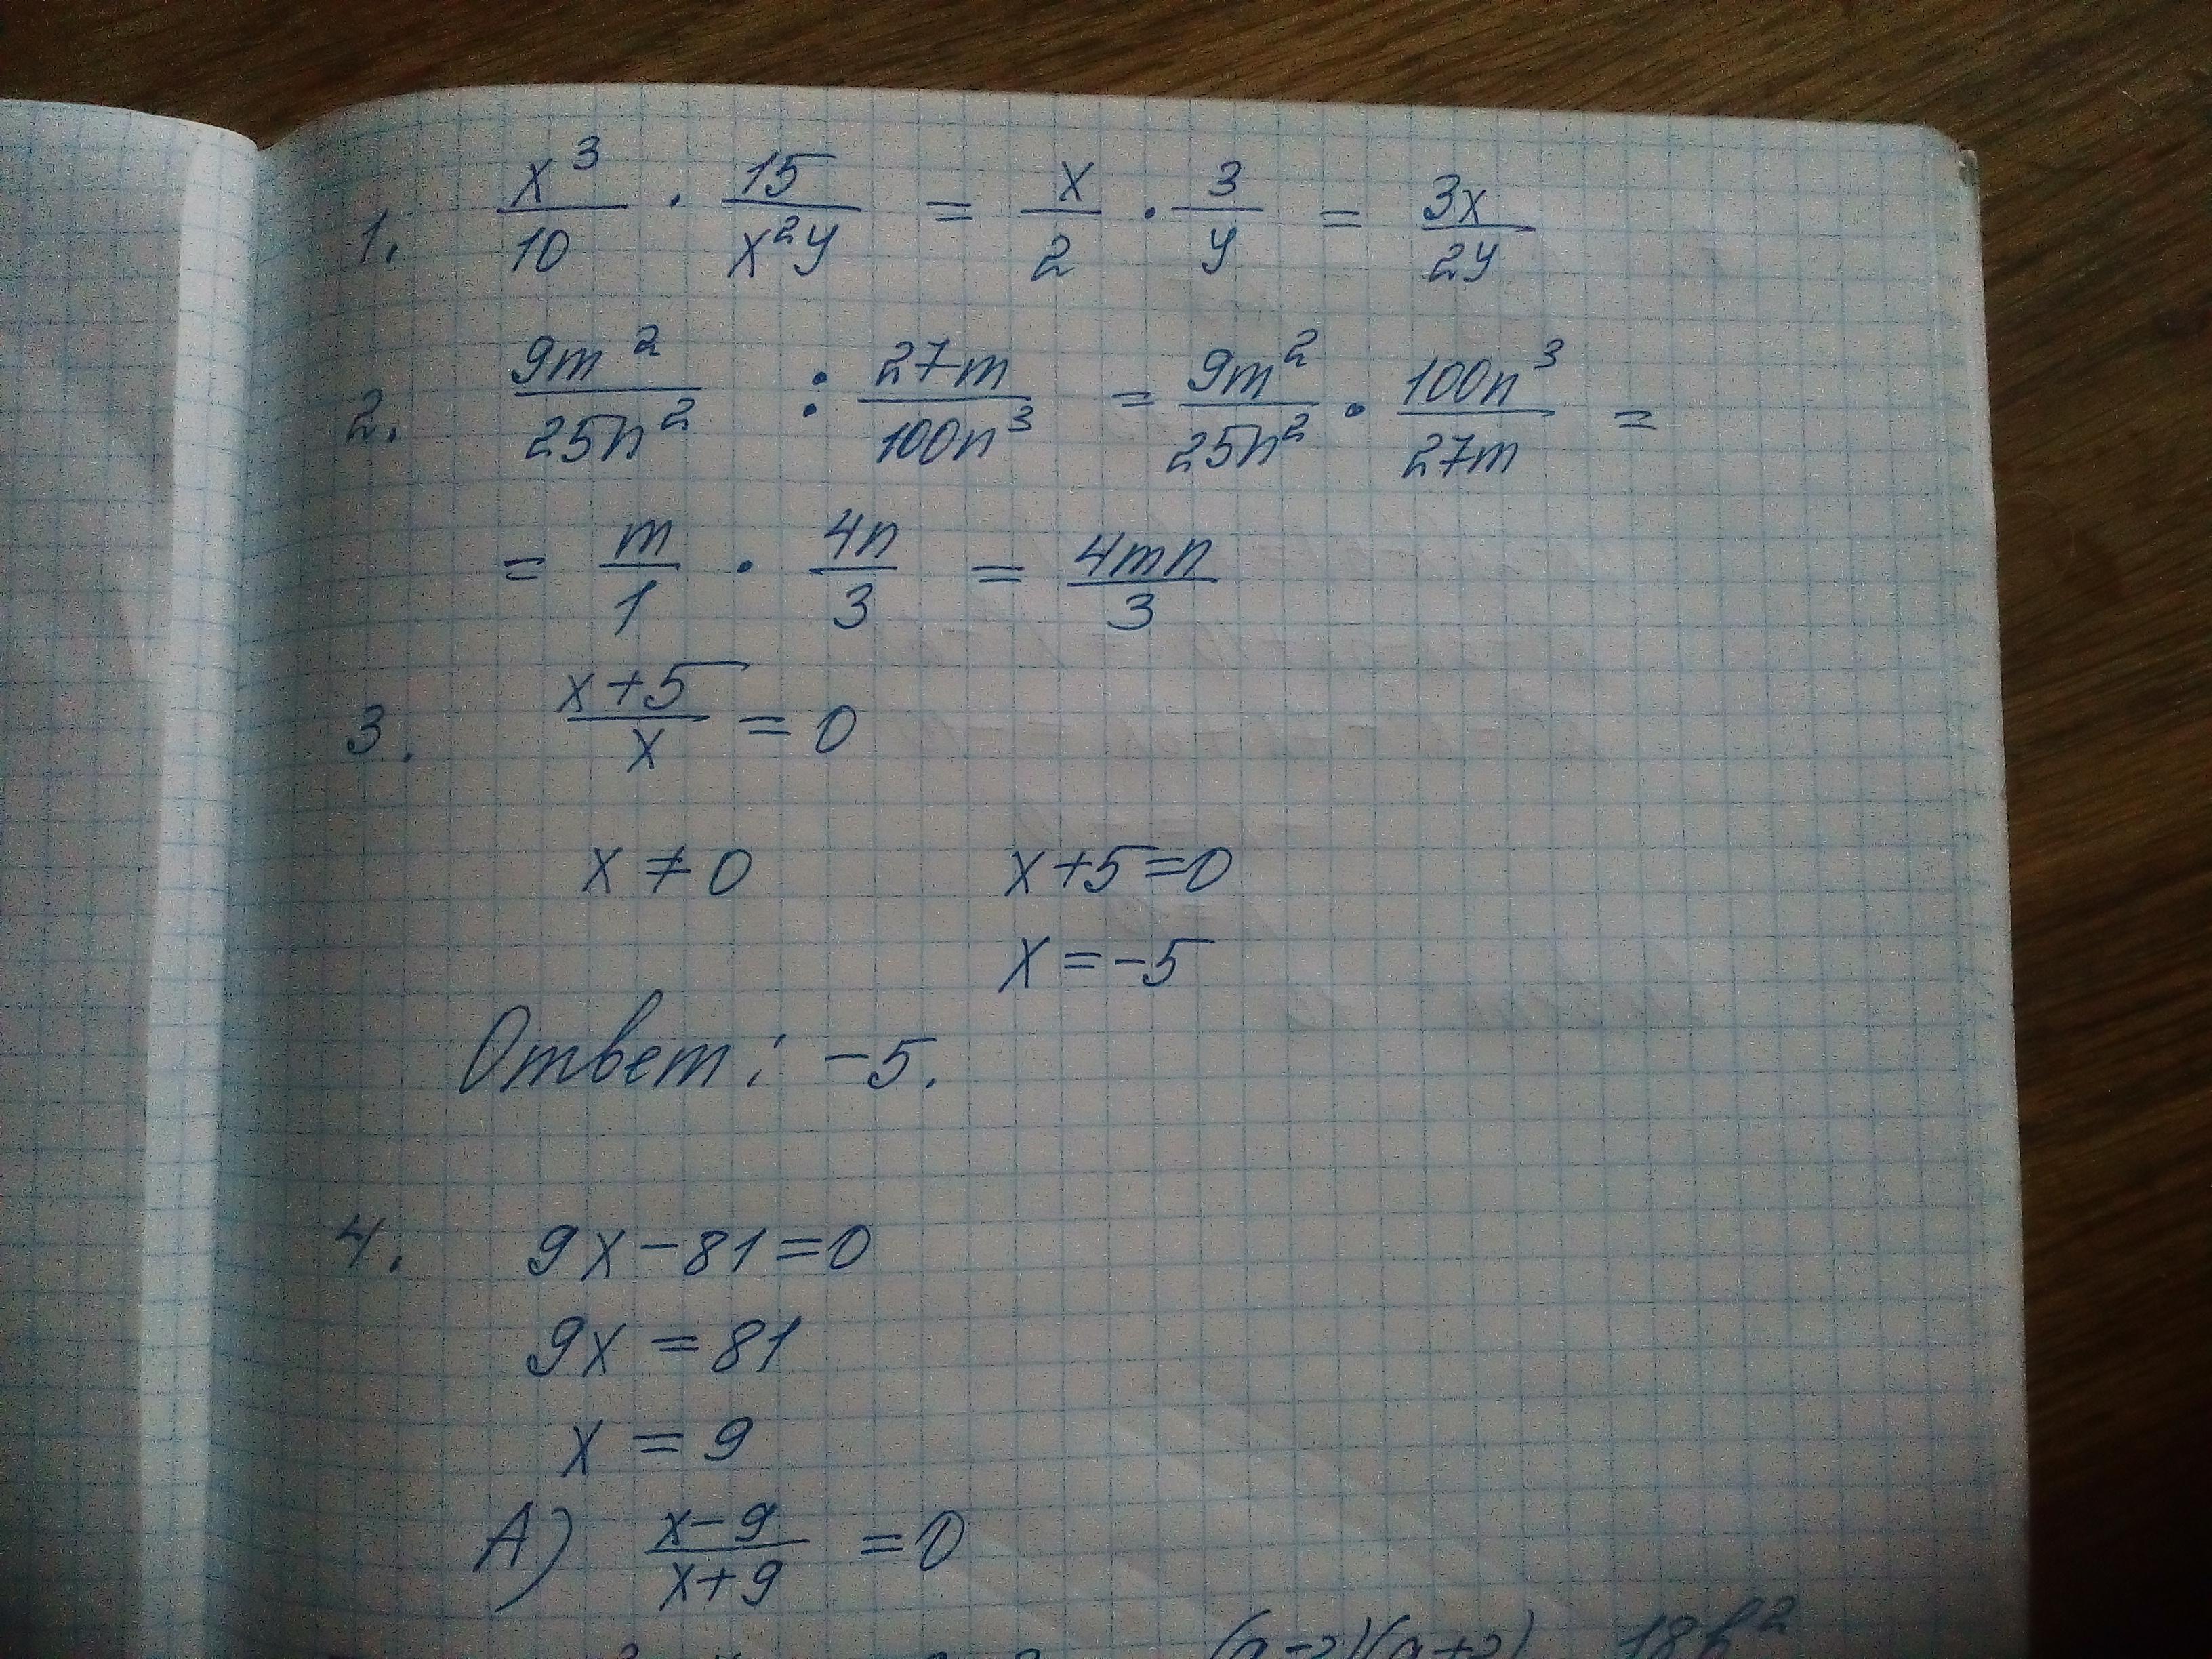 1. x³/10 · 15/x²y = x/2 · 3/y = 3x/2y
2. 9m²/25n² : 27m/100n³ = 9m²/25n² · 100n³/27m =
= m/1 · 4n/3 = 4mn/3
3. x+5/x = 0
x ≠ 0 x+5=0
x = -5
Ответ: -5.
4. 9x-81=0
9x = 81
x = 9
А) x-9/x+9 = 0
(a-2)(a+2) 18b²